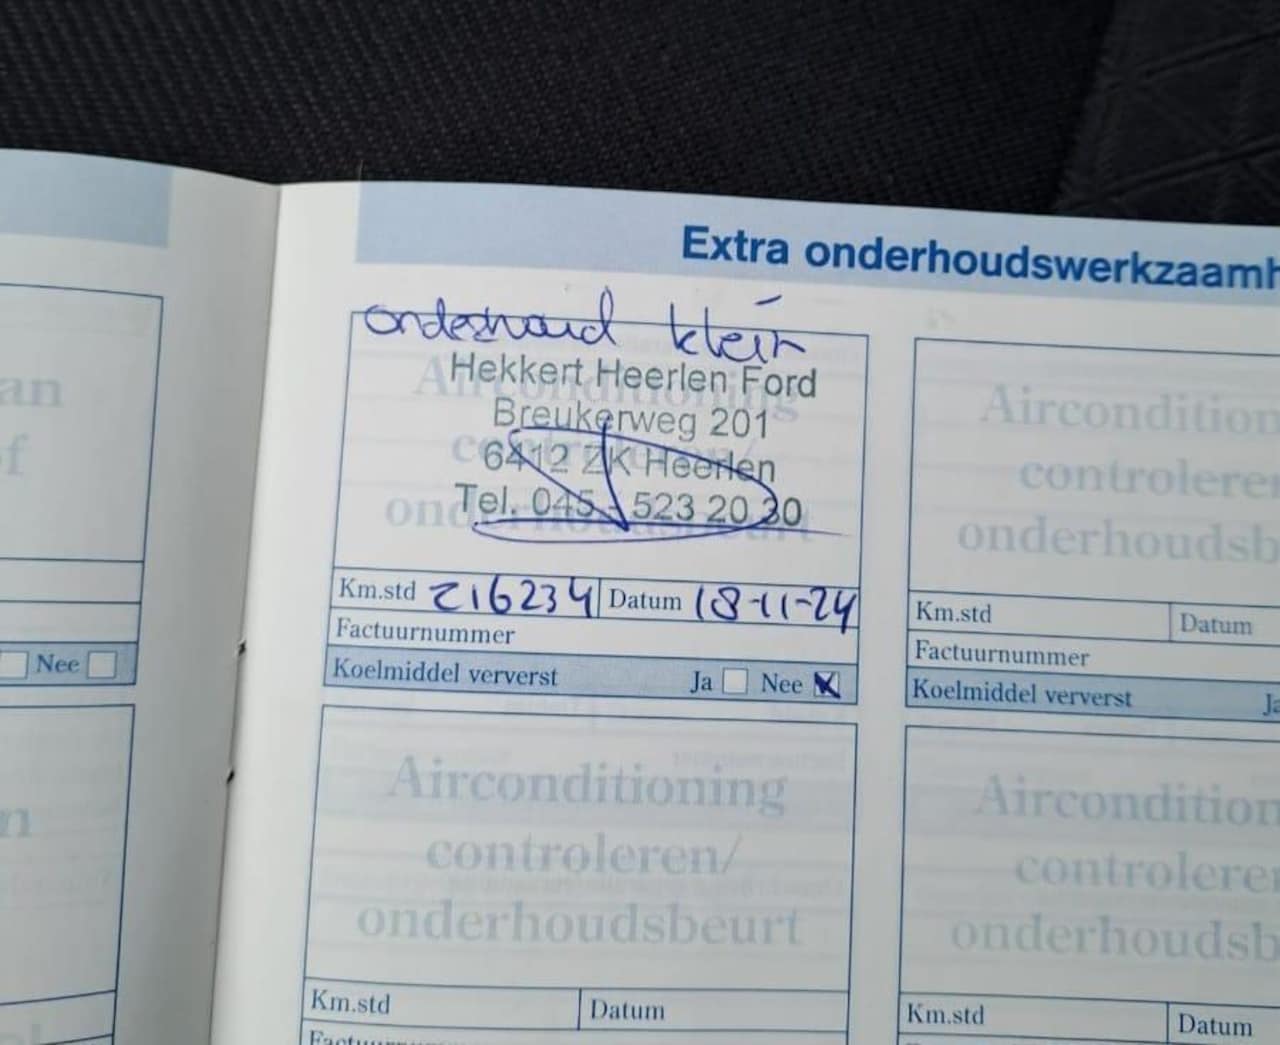 Extra onderhoudswerkzaamh
onderhoud klein
Airconditioning
controleren/
onderhoudsbeurt
Hekkert Heerlen Ford
Breukerweg 201
6412 ZK Heerlen
Tel. 045 - 523 20 30
Km.std 216234 Datum 18-11-24
Factuurnummer
Koelmiddel ververst Ja Nee
Airconditioning
controleren/
onderhoudsbeurt
Km.std Datum
Factuurnummer
Airconditioni
controlere
onderhoudsb
Km.std Datum
Factuurnummer
Koelmiddel ververst Ja
Aircondition
controlere
onderhoudsb
Km.std Datum
an
f
Nee
n